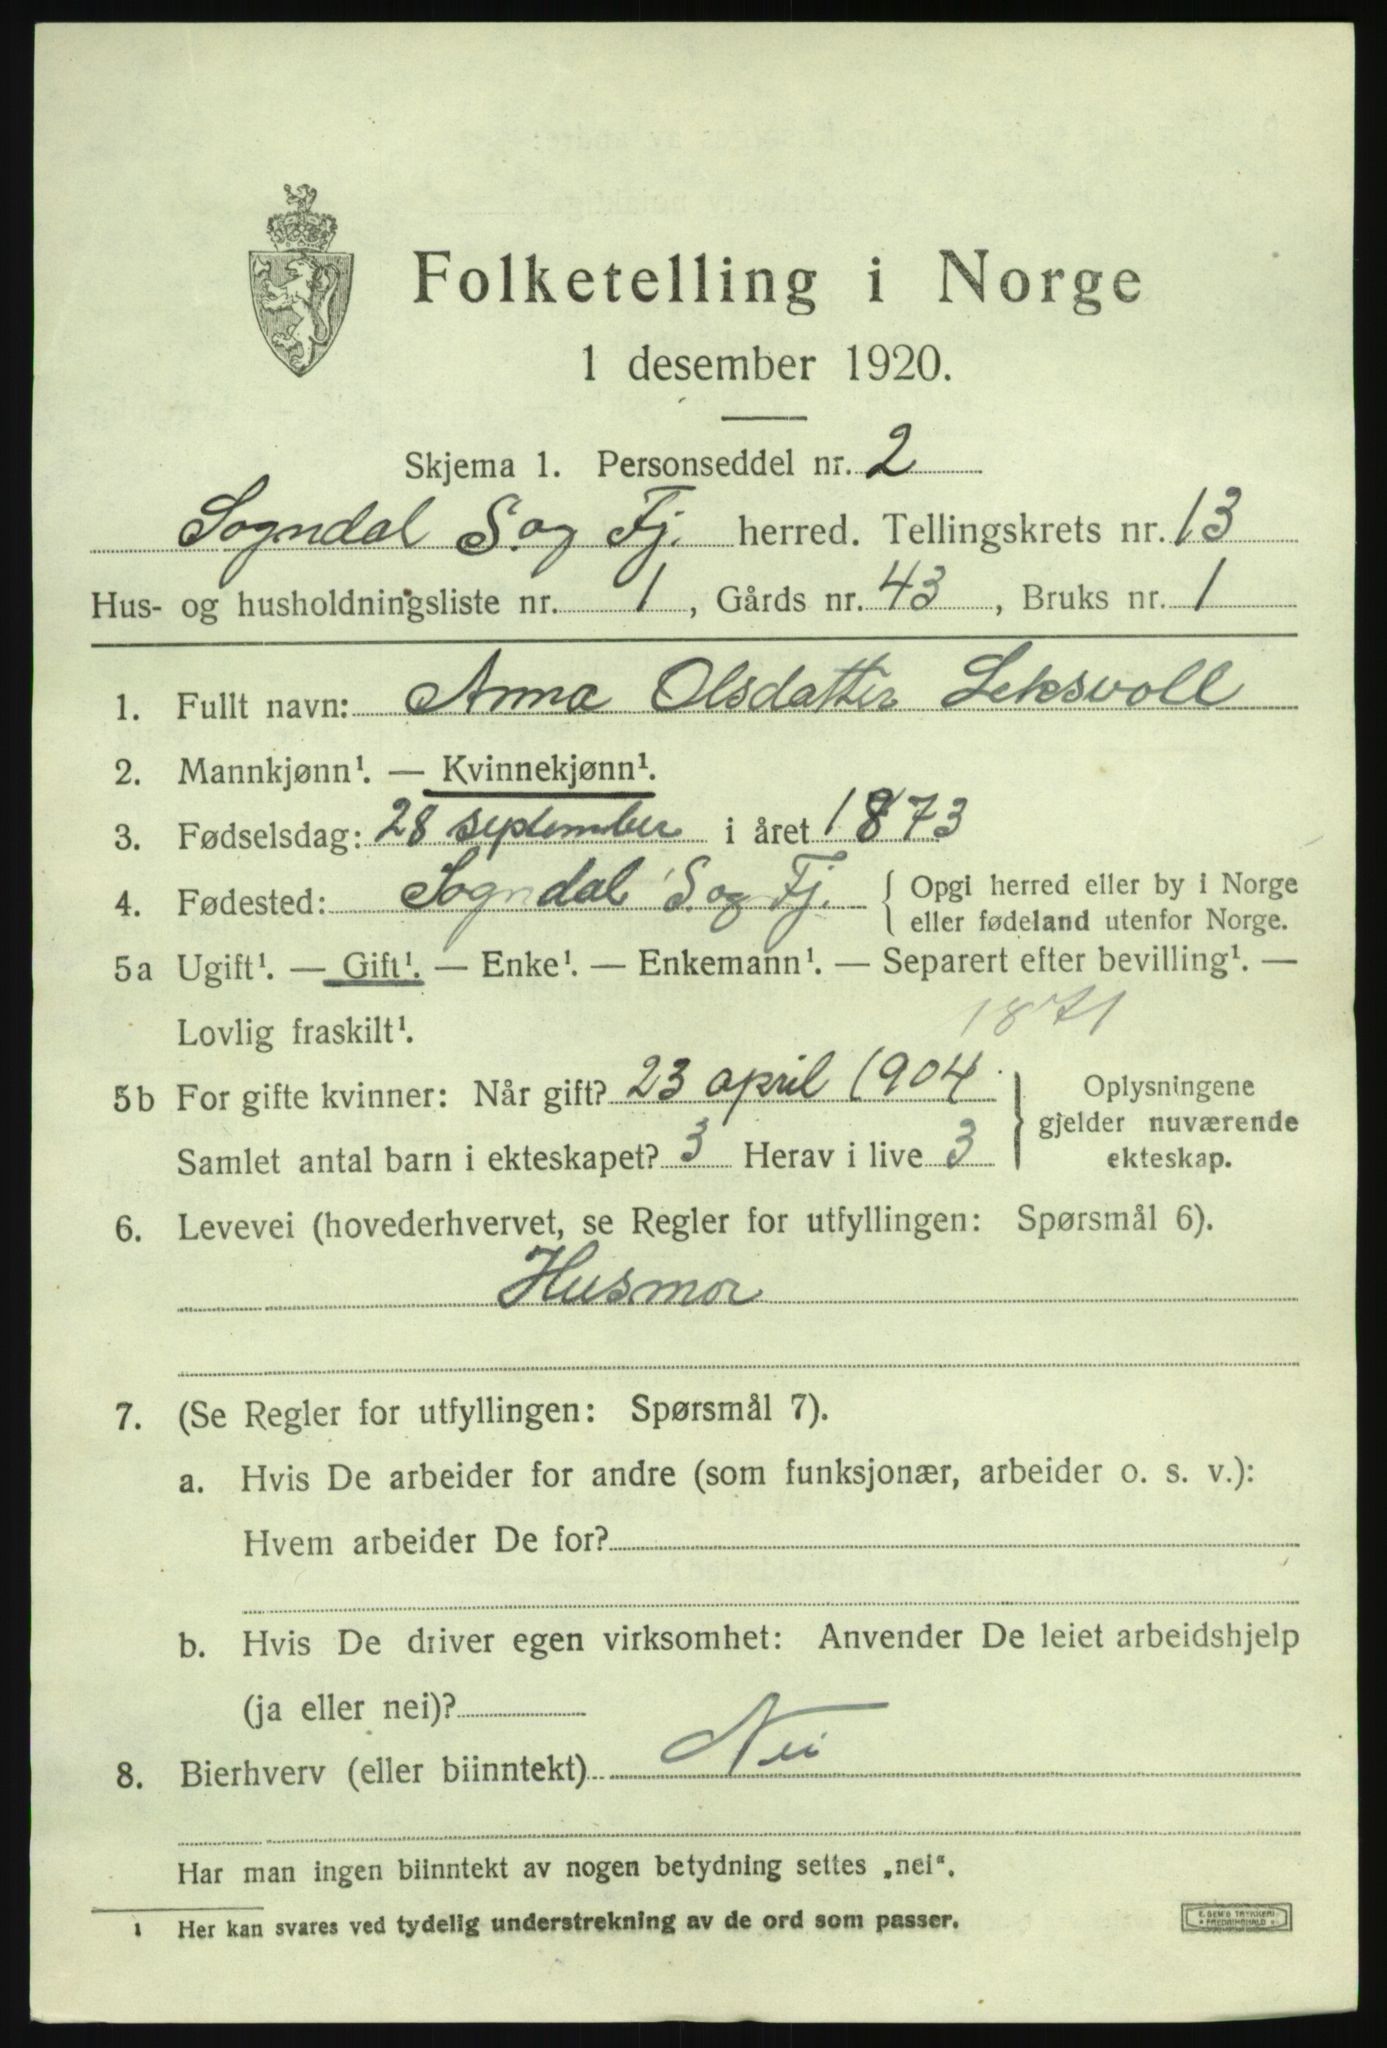 Folketelling i Norge
1 desember 1920.
Skjema 1. Personseddel nr. 2
Sogndal S. og Fj. herred. Tellingskrets nr. 13
Hus- og husholdningsliste nr. 1, Gårds nr. 43, Bruks nr. 1
1. Fullt navn: Anna Olsdatter Leksvoll
2. Mannkjønn¹. — Kvinnekjønn¹.
3. Fødselsdag: 28 september i året 1873
4. Fødested: Sogndal S. og Fj. { Opgi herred eller by i Norge
eller fødeland utenfor Norge.
5a Ugift¹. — Gift¹. — Enke¹. — Enkemann¹. — Separert efter bevilling¹. —
Lovlig fraskilt¹. 1871
5b For gifte kvinner: Når gift? 23 april 1904 } Oplysningene
gjelder nuværende
Samlet antal barn i ekteskapet? 3 Herav i live 3 ekteskap.
6. Levevei (hovederhvervet, se Regler for utfyllingen: Spørsmål 6).
Husmor
7. (Se Regler for utfyllingen: Spørsmål 7).
a. Hvis De arbeider for andre (som funksjonær, arbeider o. s. v.):
Hvem arbeider De for?
b. Hvis De driver egen virksomhet: Anvender De leiet arbeidshjelp
(ja eller nei)?
8. Bierhverv (eller biinntekt) Nei
Har man ingen biinntekt av nogen betydning settes „nei“.
¹ Her kan svares ved tydelig understrekning av de ord som passer.
E. SEM'S TRYKKERI
FREDRIKSHALD